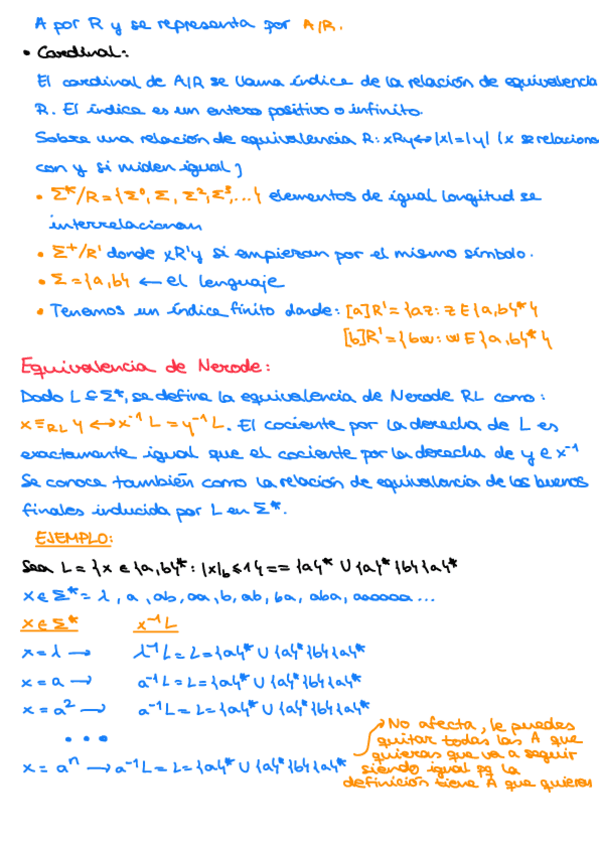 A por R y se representa por A/R.
• Cardinal:
El cardinal de A/R se llama índice de la relación de equivalencia
R. El índice es un entero positivo o infinito.
Sobre una relación de equivalencia R: xRy↔|x|=|y| (x se relaciona
con y si miden igual)
• Σ*/R = {Σ⁰, Σ, Σ², Σ³, ...} elementos de igual longitud se
interrelacionan
• Σ⁺/R' donde xR'y si empiezan por el mismo símbolo.
• Σ = {a,b} ← el lenguaje
• Tenemos un índice finito donde: [a]R' = {az: z ∈ {a,b}*}
[b]R' = {bw: w ∈ {a,b}*}
Equivalencia de Nerode:
Dado L ⊆ Σ*, se define la equivalencia de Nerode RL como:
x ≡RL y ↔ x⁻¹L = y⁻¹L. El cociente por la derecha de L es
exactamente igual que el cociente por la derecha de y e x⁻¹
Se conoce también como la relación de equivalencia de los buenos
finales inducida por L en Σ*.
EJEMPLO:
Sea L = {x ∈ {a,b}*: |x|b ≤ 1} == {a}* ∪ {a}*{b}{a}*
x ∈ Σ* = λ, a, ab, aa, b, ab, ba, aba, aaaaaa...
x ∈ Σ* x⁻¹L
x = λ → λ⁻¹L = L = {a}* ∪ {a}*{b}{a}*
x = a → a⁻¹L = L = {a}* ∪ {a}*{b}{a}*
x = a² → a⁻¹L = L = {a}* ∪ {a}*{b}{a}*
• • •
x = aⁿ → a⁻¹L = L = {a}* ∪ {a}*{b}{a}*
No afecta, le puedes
quitar todas las A que
quieras que va a seguir
siendo igual pq la
definición tiene A que quieren